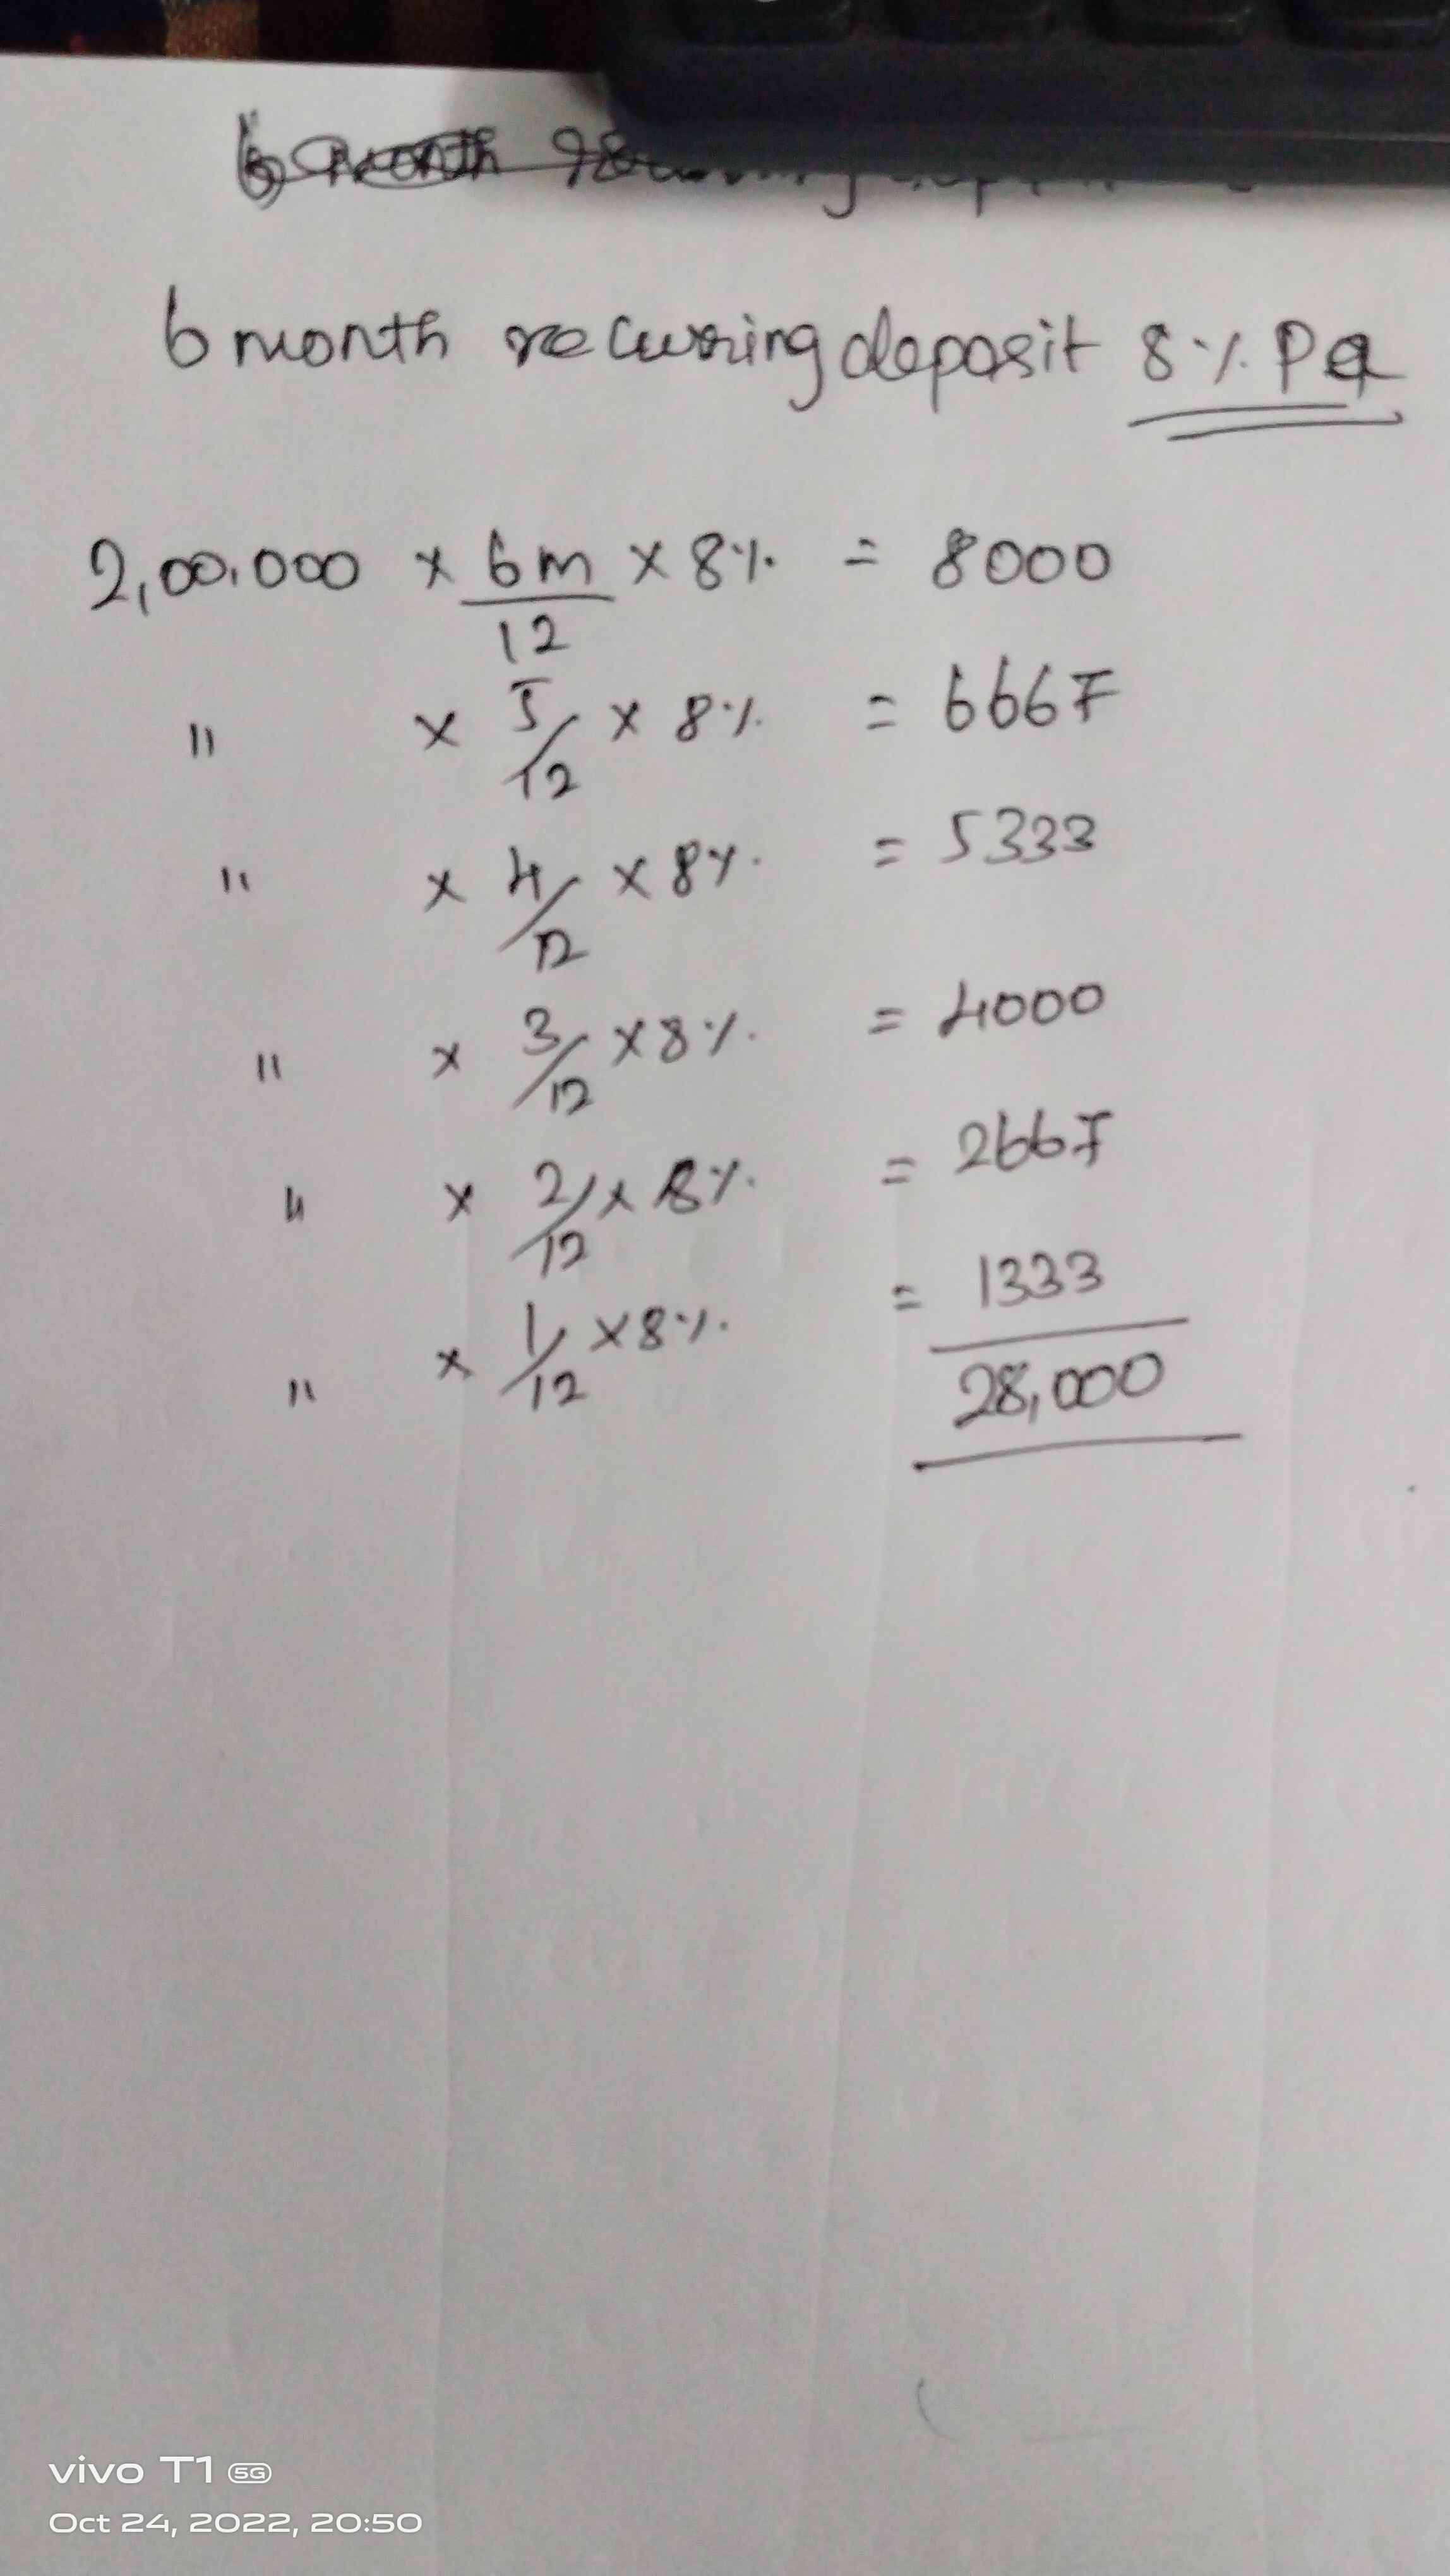 6 month
6 month recurring deposit 8% Pa
2,00,000 × 6m/12 × 8% = 8000
" × 5/12 × 8% = 6667
" × 4/12 × 8% = 5333
" × 3/12 × 8% = 4000
" × 2/12 × 8% = 2667
" × 1/12 × 8% = 1333
28,000
vivo T1 5G
Oct 24, 2022, 20:50